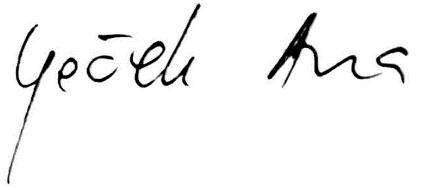 Ječek Ana